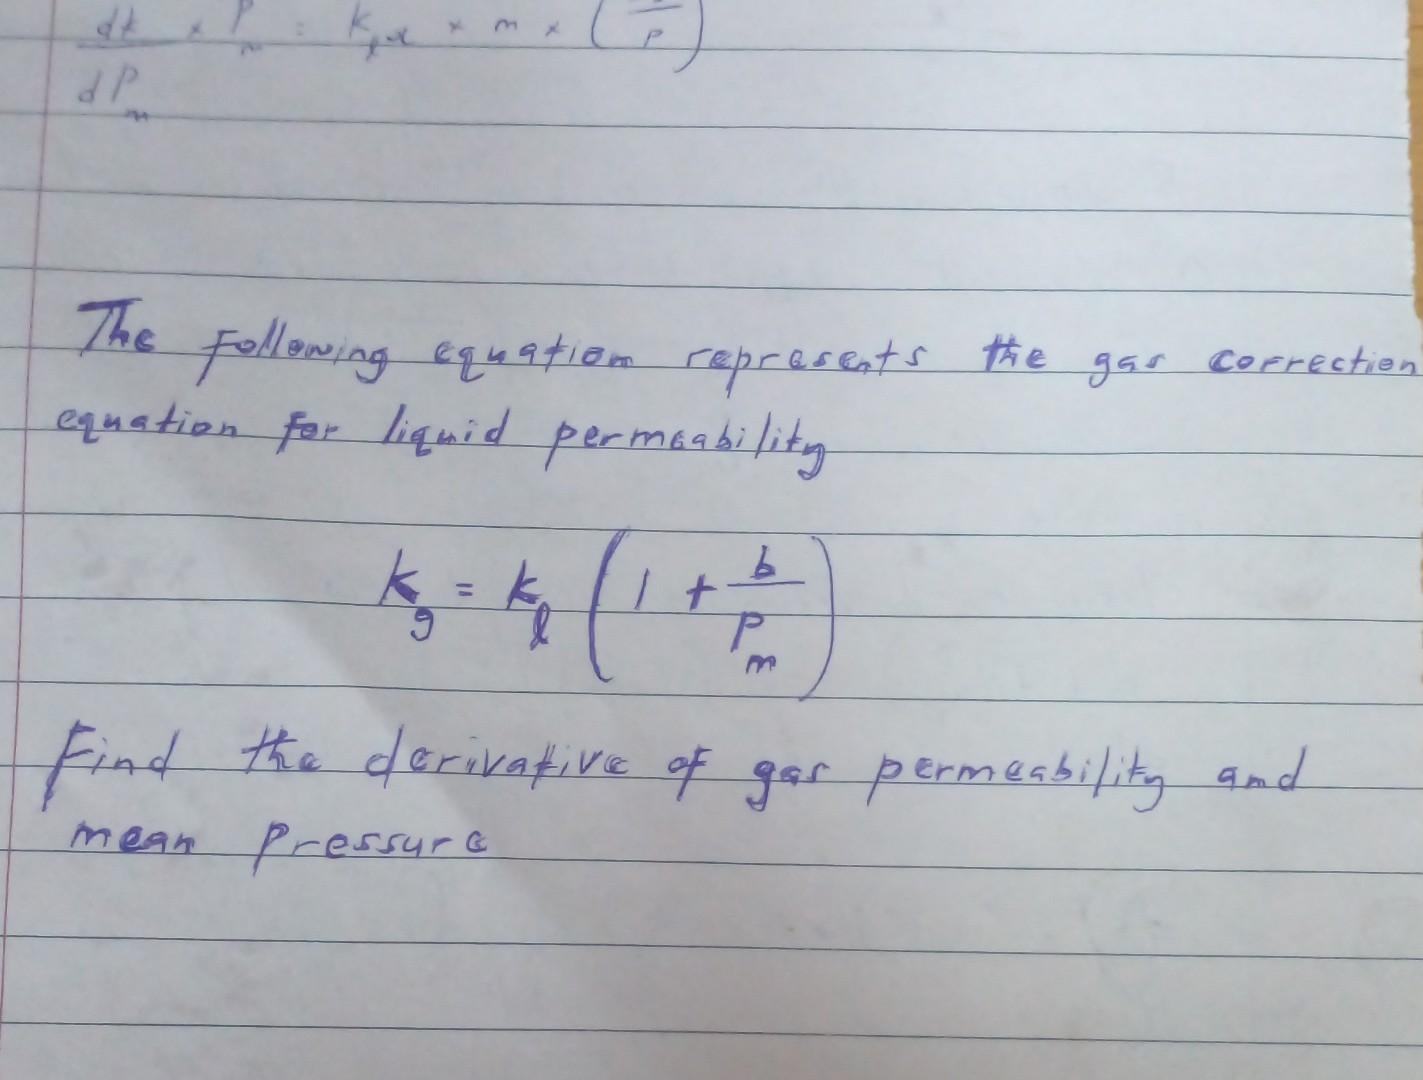 dk/dPm × Pm = × m × ( /P)
The following equation represents the gas correction
equation for liquid permeability
kg = kl (1 + b/Pm)
Find the derivative of gas permeability and
mean pressure